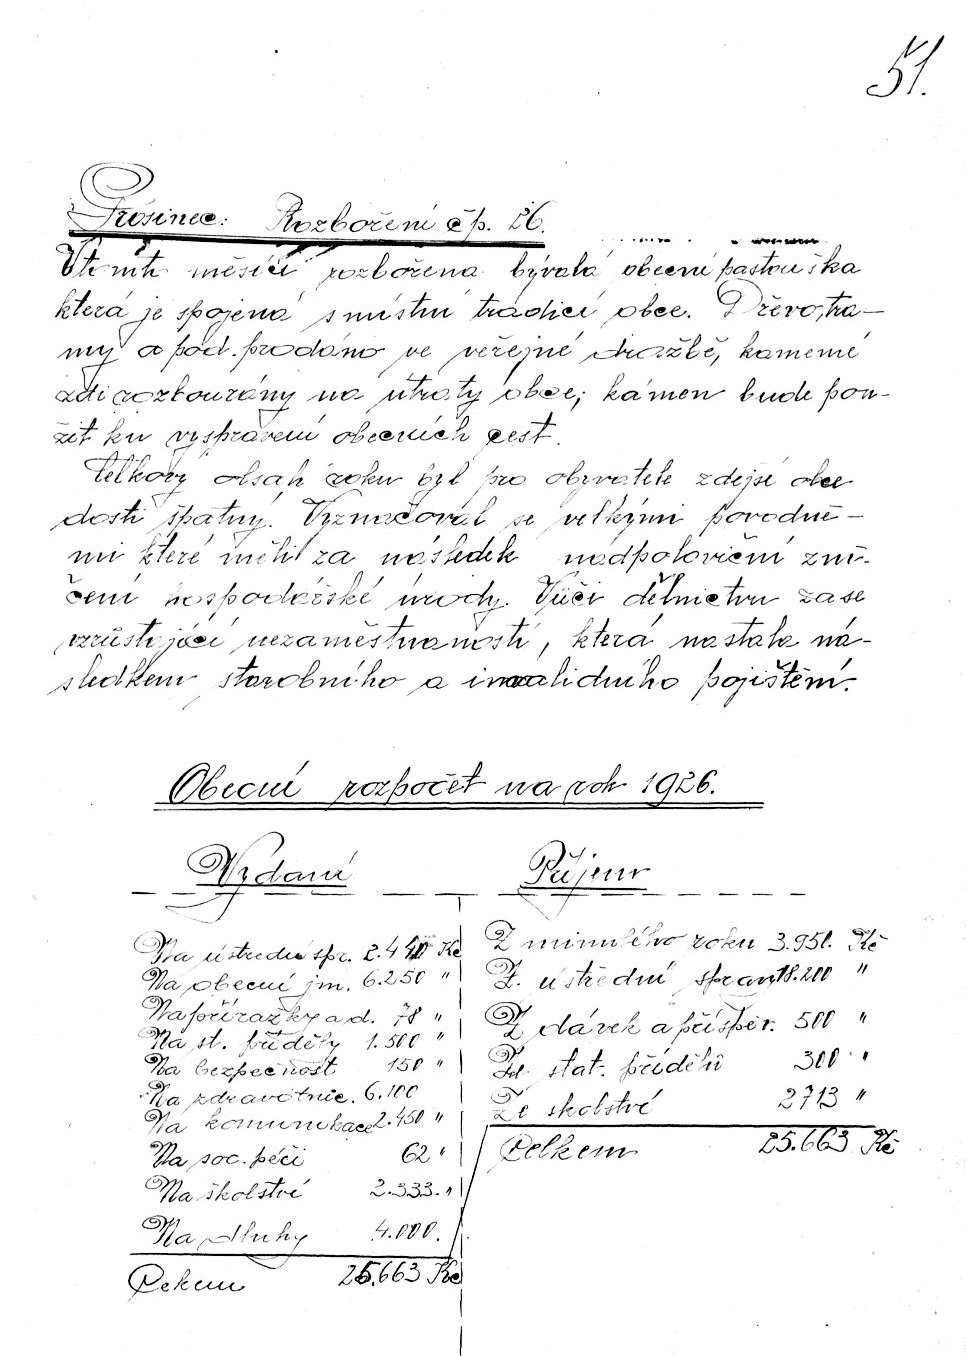 51.
Prosinec: Rozboření čp. 26.
V tomto měsíci rozbořena bývalá obecní pastouška
která je spojena s místní tradicí obce. Dřevo, tra-
my a pod. prodáno ve veřejné dražbě, kamenné
zdi rozbourány na útraty obce; kámen bude pou-
žit ku vyspravení obecních cest.
Celkový obsah roku byl pro obyvatele zdejší obce
dosti špatný. Vyznačoval se velkými povodně-
mi které měli za následek nadpoloviční zni-
čení hospodářské úrody. Vůči dělnictvu zase
vzrůstající nezaměstnaností, která nastala ná-
sledkem starobního a invalidního pojištění.
Obecní rozpočet na rok 1926.
Vydaní Příjem
Na ústřední spr. 2.440 Kč
Na obecní jm. 6.250 "
Na přirážky a d. 78 "
Na st. příděly 1.500 "
Na bezpečnost 150 "
Na zdravotnic. 6.100
Na komunikace 2.450 "
Na soc. péči 62 "
Na školství 2.333. "
Na dluhy 4.000.
Celkem 25.663 Kč
Z minulého roku 3.950. Kč
Z ústřední správy 18.200 "
Z dávek a příspěv. 500 "
Ze stat. přídělů 300 "
Ze školství 2713 "
Celkem 25.663 Kč